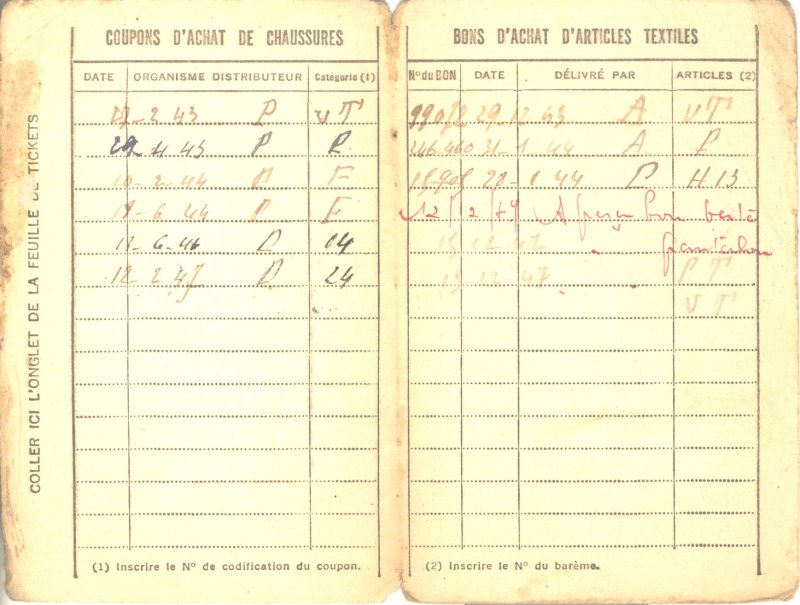 COLLER ICI L'ONGLET DE LA FEUILLE DE TICKETS
COUPONS D'ACHAT DE CHAUSSURES
DATE ORGANISME DISTRIBUTEUR Catégorie (1)
2 43 P VT
43 P R
2 44 F
18-6 44 P F
6-46 P 04
12 2 47 P 24
(1) Inscrire le N° de codification du coupon.
BONS D'ACHAT D'ARTICLES TEXTILES
N° du BON DATE DÉLIVRÉ PAR ARTICLES (2)
29 12 43 A VT
246460 31-1 44 A P
20-1 44 P H 13
12/12/47 A perçu bon veste
12 47 pantalon
15 12 47 PT
VT
(2) Inscrire le N° du barème.